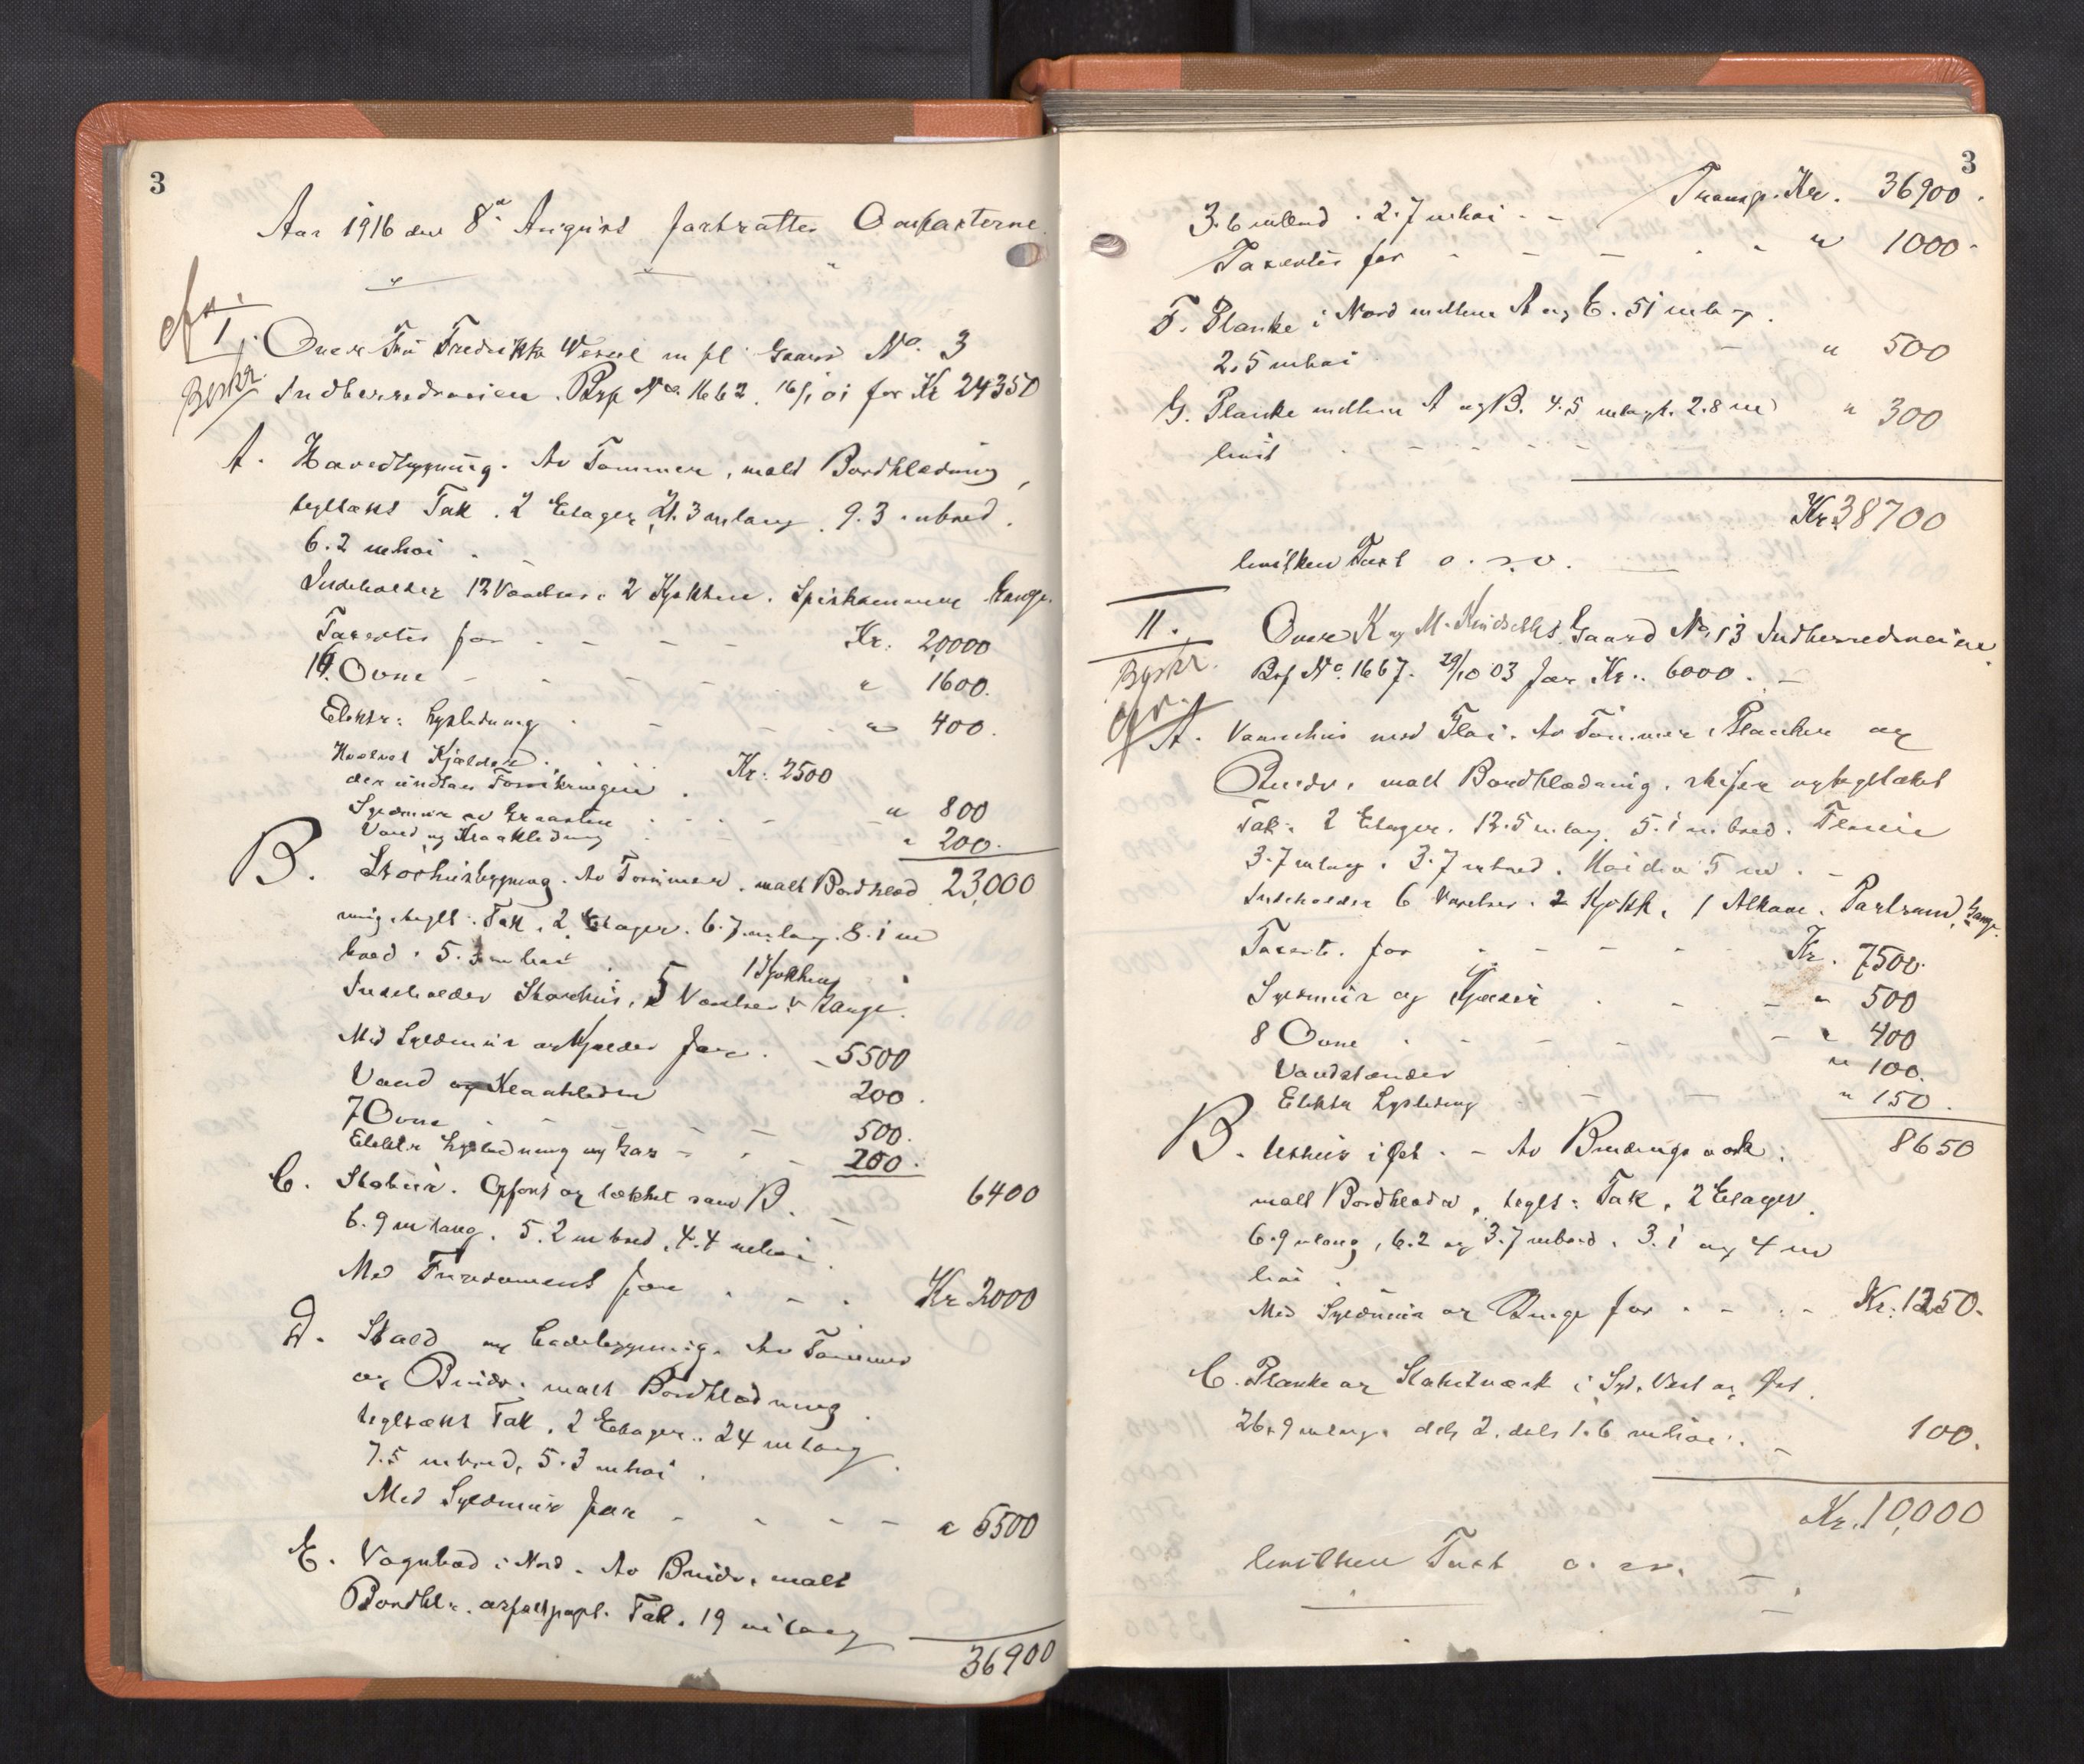 3
Aar 1916 den 8de August fortsattes Omtaxterne
I. Over Fru Fredrikke Wessel m fl Gaard No. 3
Byskr.
Indherredsveien. Brp No. 1662. 16/1 01 for Kr 24350
A. Hovedbygning. Av Tømmer, malt Bordklædning,
tegltækt Tak. 2 Etager, 21.3 m lang. 9.3 m bred.
6.2 m høi.
Indeholder 12 Værelser. 2 Kjøkken. Spiskammere Gange.
Taxertes for - - - - Kr. 20000
16 Ovne - - - - " 1600.
Elektr: Lysledning - - - " 400.
Hvelvet Kjælder . . . Kr. 2500
der undtas Forsikringen
Syldmur av Graasten . . . " 800
Vand og Kloakledning . . . " 200.
23,000
B. Størhusbygning. Av Tømmer. malt Bordklæd
ning, teglt: Tak, 2 Etager. 6.7 m lang. 8.1 m
bred. 5.3 m høi.
1 Kjøkken
Indeholder Størhus, 5 Værelser & Gange.
Med Syldmur og Kjælder for - 5500
Vand og Kloakledn 200.
7 Ovne - - - 500.
Elektr Lysledning og Gas - - - 200.
6400
C. Stabur. Opført og tækket som B.
6.9 m lang. 5.2 m bred, 4.4 m høi.
Med Fundament for . - . Kr 2000
D. Stald og Ladebygning. Av Tømmer
og Bindv. malt Bordklædning.
tegltækt Tak, 2 Etager.. 24 m lang
7.5 m bred, 5.3 m høi.
Med Syldmur for - - - - " 5500
E. Vognbod i Nord. Av Bindv. malt
Bordkl. asfaltpapt. Tak. 19 m lang
36900
3
Transp. Kr. 36900.
3.6 m bred. 2.7 m høi - -
Taxertes for - - - - " 1000-
F. Planke i Nord mellem A og C. 51 m lang.
2.5 m høi - " 500
G. Planke mellem A og B. 4.5 m langt. 2.8 m " 300
høit - - - -
Kr. 38700
hvilken Taxt o.s.v.
II. Over K og M. Gaard No 13 Indherredsveien.
Byskr.
Brp No. 1667. 29/10 03 for Kr. 6000. -
A. Vaanehus med Fløi. Av Tømmer Planker og
Bindv. malt Bordklædning. skifer og tegltækt
Tak. 2 Etager. 12.5 m lang. 5.1 m bred. Fløien
3.7 m lang. 3.7 m bred. Høiden 5 m. -
Indeholder 6 Værelser. 2 Kjøkk. 1 Alkove. Gange.
Taxert. for - - - - Kr. 7500.
Syldmur og Kjælder . - - " 500
8 Ovne - - - - " 400
Vandstænder " 100.
Elektr Lysledning - - " 150.
8650
B. Uthus i Øst. - Av Bindingsverk.
malt Bordklædn, teglt: Tak, 2 Etager.
6.9 m lang, 6.2 og 3.7 m bred. 3.1 og 4 m
høi.
Med Syldmur og Binge for - - - Kr. 1250.
C. Planke og Stakitværk i Syd, Vest og Øst.
26.9 m lang. dels 2. dels 1.6 m høi. - 100.
Kr. 10,000
hvilken Taxt o.s.v.